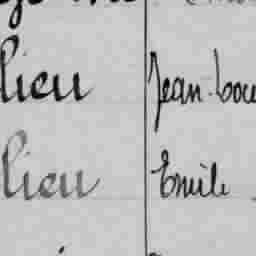 lieu Jean-Lou
lieu Emile